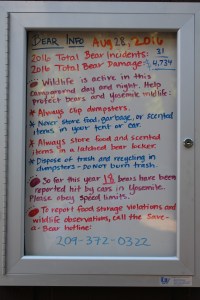 BEAR INFO Aug 28, 2016
2016 Total Bear Incidents: 31
2016 Total Bear Damage: $4,734
Wildlife is active in this
campground day and night. Help
protect bears and Yosemite wildlife:
* Always clip dumpsters.
* Never store food, garbage, or scented
items in your tent or car.
* Always store food and scented
items in a latched bear locker.
* Dispose of trash and recycling in
dumpsters - DO NOT burn trash.
So far this year 18 bears have been
reported hit by cars in Yosemite.
Please obey speed limits.
To report food storage violations and
wildlife observations, call the Save-
a-Bear hotline:
209-372-0322